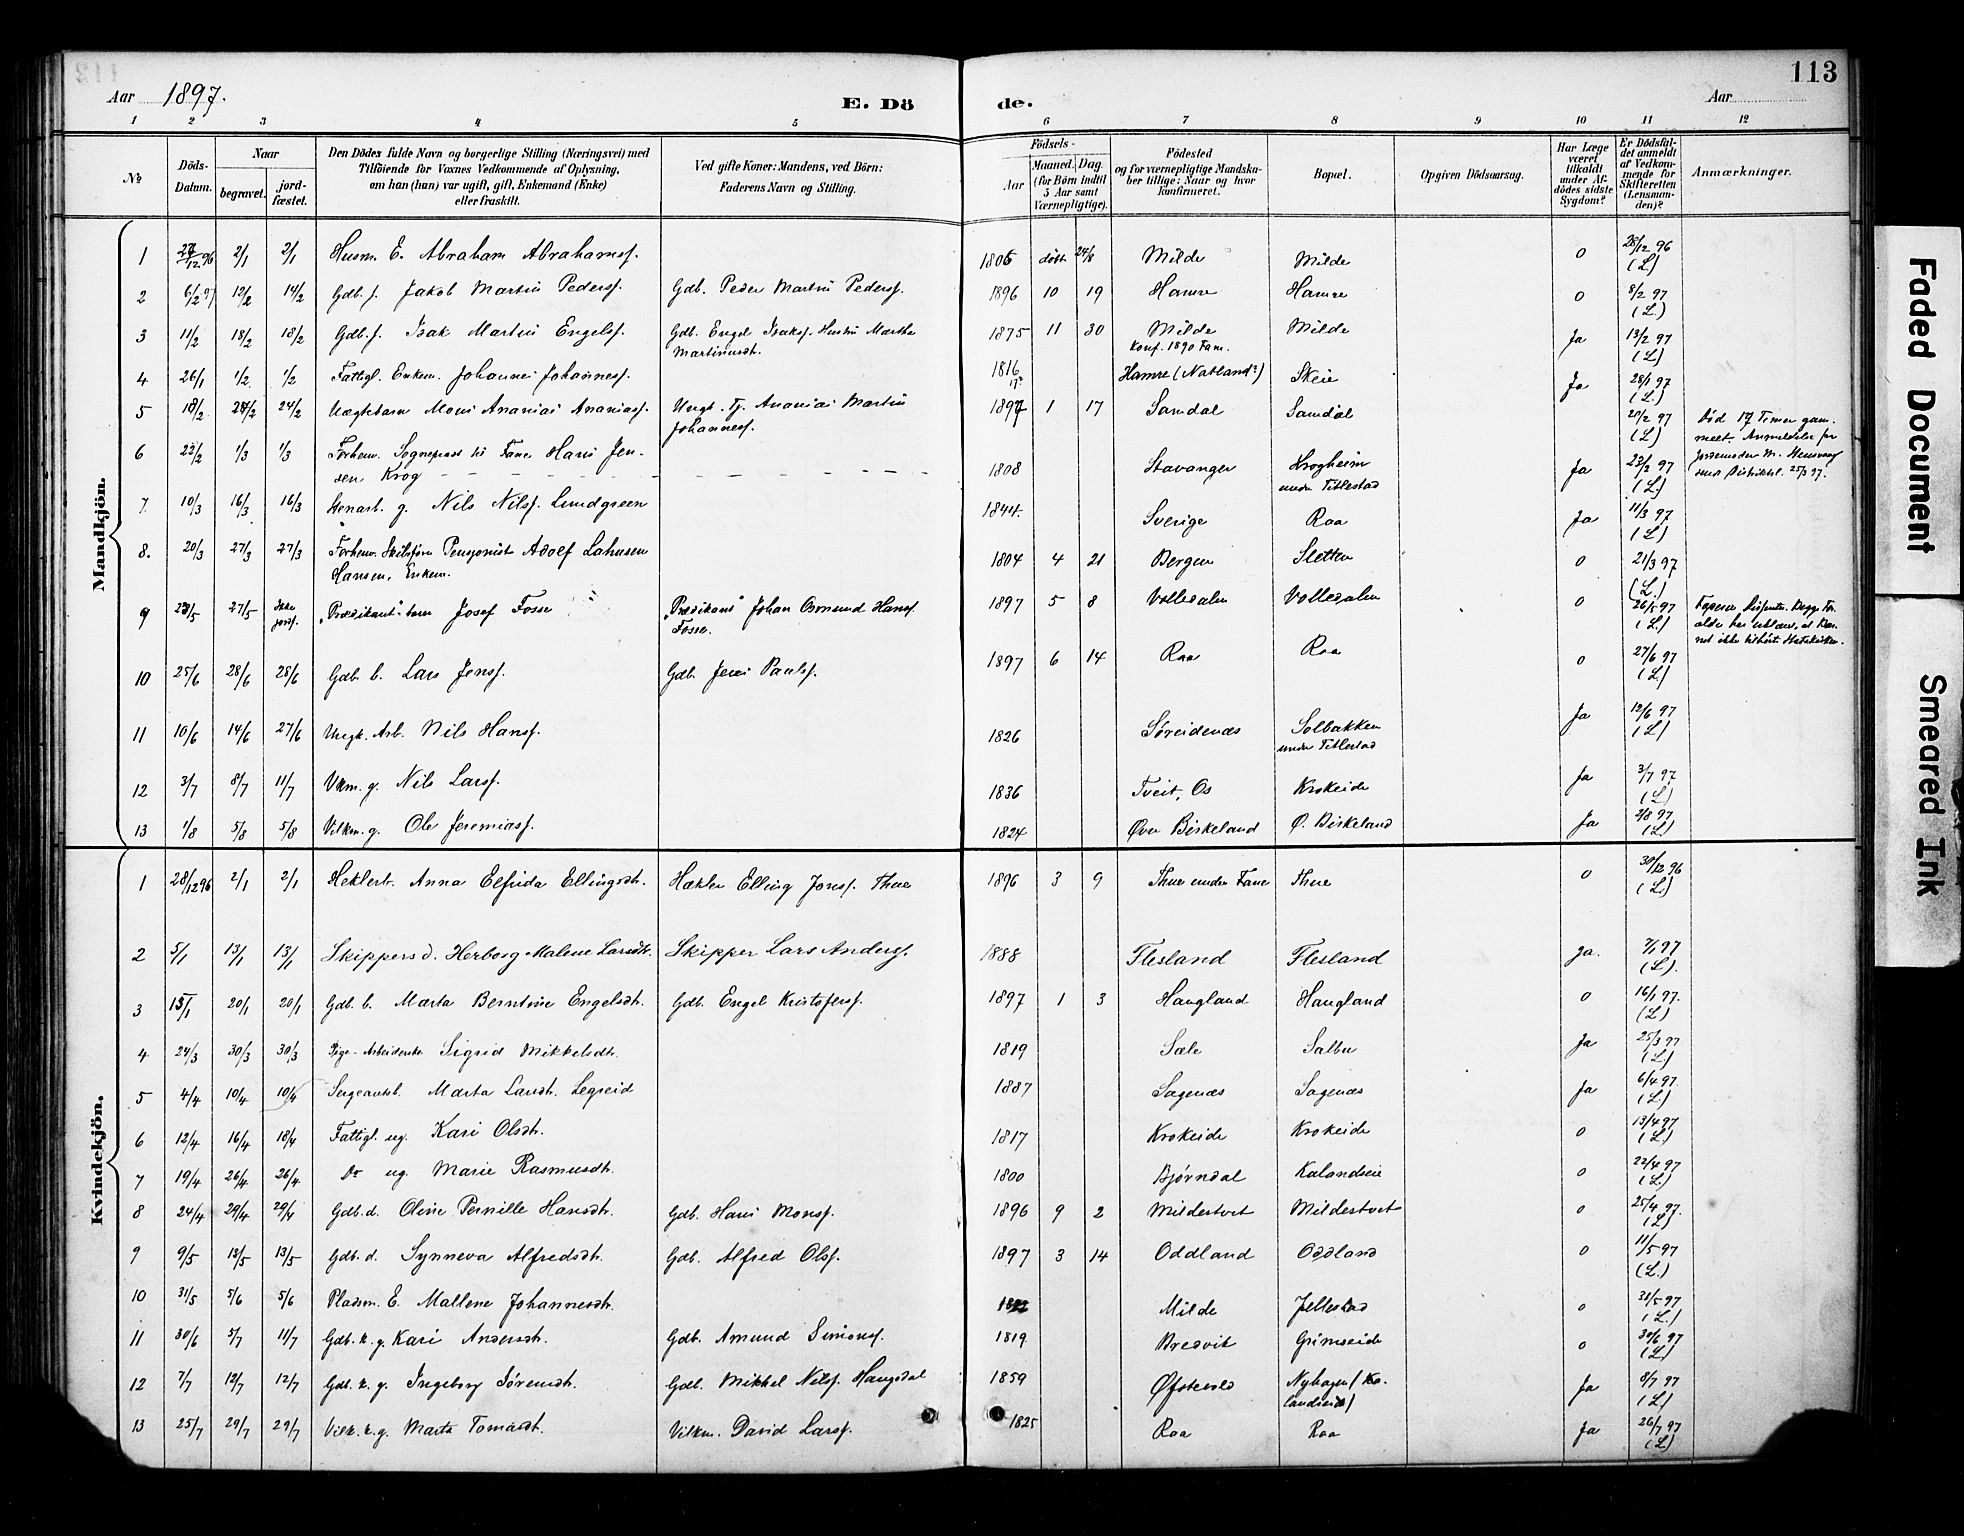 113
Aar 1897.
E. Dö
de.
Aar
1 2 3 4 5 6 7 8 9 10 11 12
No
Döds-Datum.
Naar
begravet.
jord-fæstet.
Den Dödes fulde Navn og borgerlige Stilling (Næringsvei) med
Tilföiende for Voxnes Vedkommende af Oplysning,
om han (hun) var ugift, gift, Enkemand (Enke)
eller fraskilt.
Ved gifte Koner: Mandens, ved Börn:
Faderens Navn og Stilling.
Födsels-
Aar
Maaned. Dag.
(for Börn indtil
5 Aar samt
Værnepligtige).
Födested
og for værnepligtige Mandska-
ber tillige: Naar og hvor
konfirmeret.
Bopæl.
Opgiven Dödsaarsag.
Har Læge
været
tilkaldt
under Af-
dödes sidste
Sygdom?
Er Dödsfal-
det anmeldt
af Vedkom-
mende for
Skifteretten
(Lensman-
den)?
Anmærkninger.
Mandkjön.
1 27/12 96 2/1 2/1 Husm. E. Abraham Abrahamsf. 1806 døbt 24/8 Milde Milde 0 28/12 96 (L)
2 6/2 97 12/2 14/2 Gdb. s. Jakob Martin Pedersf. Gdb. Peder Martin Pedersf. 1896 10 19 Hamre Hamre 0 8/2 97 (L.)
3 11/2 18/2 18/2 Gdb. s. Isak Martin Engelsf. Gdb. Engel Isaksf. Hustru Martha 1875 11 30 Milde Milde Ja 13/2 97 (L)
Martinusdt. Konf. 1890 Fane.
4 26/1 1/2 1/2 Fattigl. Enkem. Johannes Johannesf. 1816 Hamre (Natland?) Skeie Ja 28/1 97 (L.)
5 18/2 24/2 24/2 Uægtebarn Mons Ananias Ananiasf. Ungk. Tj. Ananias Martin 1897 1 17 Samdal Samdal 20/2 97 (L) Død 17 Timer gam-
Johannesf. melt. Anmeldelse fra
6 22/2 1/3 1/3 Forhenv. Sogneprest til Fane Hans Jen- 1808 Stavanger Krogheim Ja 23/2 97 (L)
sen Krog under Titlestad
7 10/3 16/3 16/3 Stenarb. g. Nils Nilsf. Lundgreen 1844 Sverige Raa Ja 11/3 97 (L)
8. 20/3 27/3 27/3 Forhenv. Skibsfører Pensjonist Adolf Lahusen 1804 4 21 Bergen Sletten 0 21/3 97 (L.)
Hansen, Enkem.
9 23/5 27/5 Ikke jordf. „Prædikant"s barn Josef Fosse „Prædikant" Johan Osmund Hansf. 1897 5 8 Vollesalen Vollesalen 0 26/5 97 (L.)
Fosse.
10 25/6 28/6 28/6 Gdb. b. Lars Jensf. Gdb. Jens Paulsf. 1897 6 14 Raa Raa 0 27/6 97 (L)
11 10/6 14/6 27/6 Ungk. Arb. Nils Hansf. 1826 Søreidenæs Solbakken Ja 12/6 97 (L)
under Titlestad
12 3/7 8/7 11/7 Vkm. g. Nils Larsf. 1836 Tveit, Os Krokeide Ja 3/7 97 (L)
13 1/8 5/8 5/8 Vilkm. g. Ole Jeremiasf. 1824 Øvre Birkeland Ø. Birkeland Ja 2/8 97 (L)
Kvindekjön.
1 28/12 96 2/1 2/1 Heklert. Anna Elfrida Ellingsdt. Hækler Elling Jonsf. Thue 1896 3 9 Thue under Fane Thue 0 30/12 96 (L.)
2 5/1 13/1 13/1 Skippersd. Herborg Malene Larsdt. Skipper Lars Andersf. 1888 Flesland Flesland ja. 7/1 97 (L).
3 15/1 20/1 20/1 Gdb. b. Marta Berntine Engelsdt. Gdb. Engel Kristofersf. 1897 1 3 Haugland Haugland 0 16/1 97. (L)
4 24/3 30/3 30/3 Pige-Arbeiderske Sigrid Mikkelsdt. 1819 Sæle Salbu Ja 25/3 97 (L)
5 4/4 10/4 10/4 Sergeantsb. Marta Larsdt. Legreid 1887 Sagenæs Sagenæs Ja 6/4 97. (L)
6 12/4 16/4 18/4 Fattigl. ug. Kari Olsdt. 1817 Krokeide Krokeide 0 13/4 97 (L)
7 19/4 26/4 26/4 Do ug. Marie Rasmusdt. 1800 Bjørndal Kalandseie 0 22/4 97 (L)
8 24/4 29/4 29/4 Gdb. d. Oline Pernille Hansdt. Gdb. Hans Monsf. 1896 9 2 Mildestvet Mildestvet 0 25/4 97. (L)
9 9/5 13/5 13/5 Gdb. d. Synneva Alfredsdt. Gdb. Alfred Olsf. 1897 3 14 Oddland Oddland 0 11/5 97 (L.)
10 31/5 5/6 5/6 Pladsm. E. Mallene Johannesdt. Milde Jellestad 0 31/5 97 (L.)
11 30/6 5/7 11/7 Gdb. k. g. Kari Andersdt. Gdb. Amund Simonsf. 1819 Bredvik Grimseide 0 30/6 97 (L)
12 7/7 12/7 12/7 Gdb. k. g. Ingeborg Sørensdt. Gdb. Mikkel Nilsf. Haugsdal 1859 Øfstevold Nyhagen (Ka- Ja 8/7 97 (L)
landseid)
13 25/7 29/7 29/7 Vilk. k. g. Marta Tomasdt. Vilkm. David Larsf. 1825 Raa Raa Ja 26/7 97 (L)
Faded Document
Smeared Ink